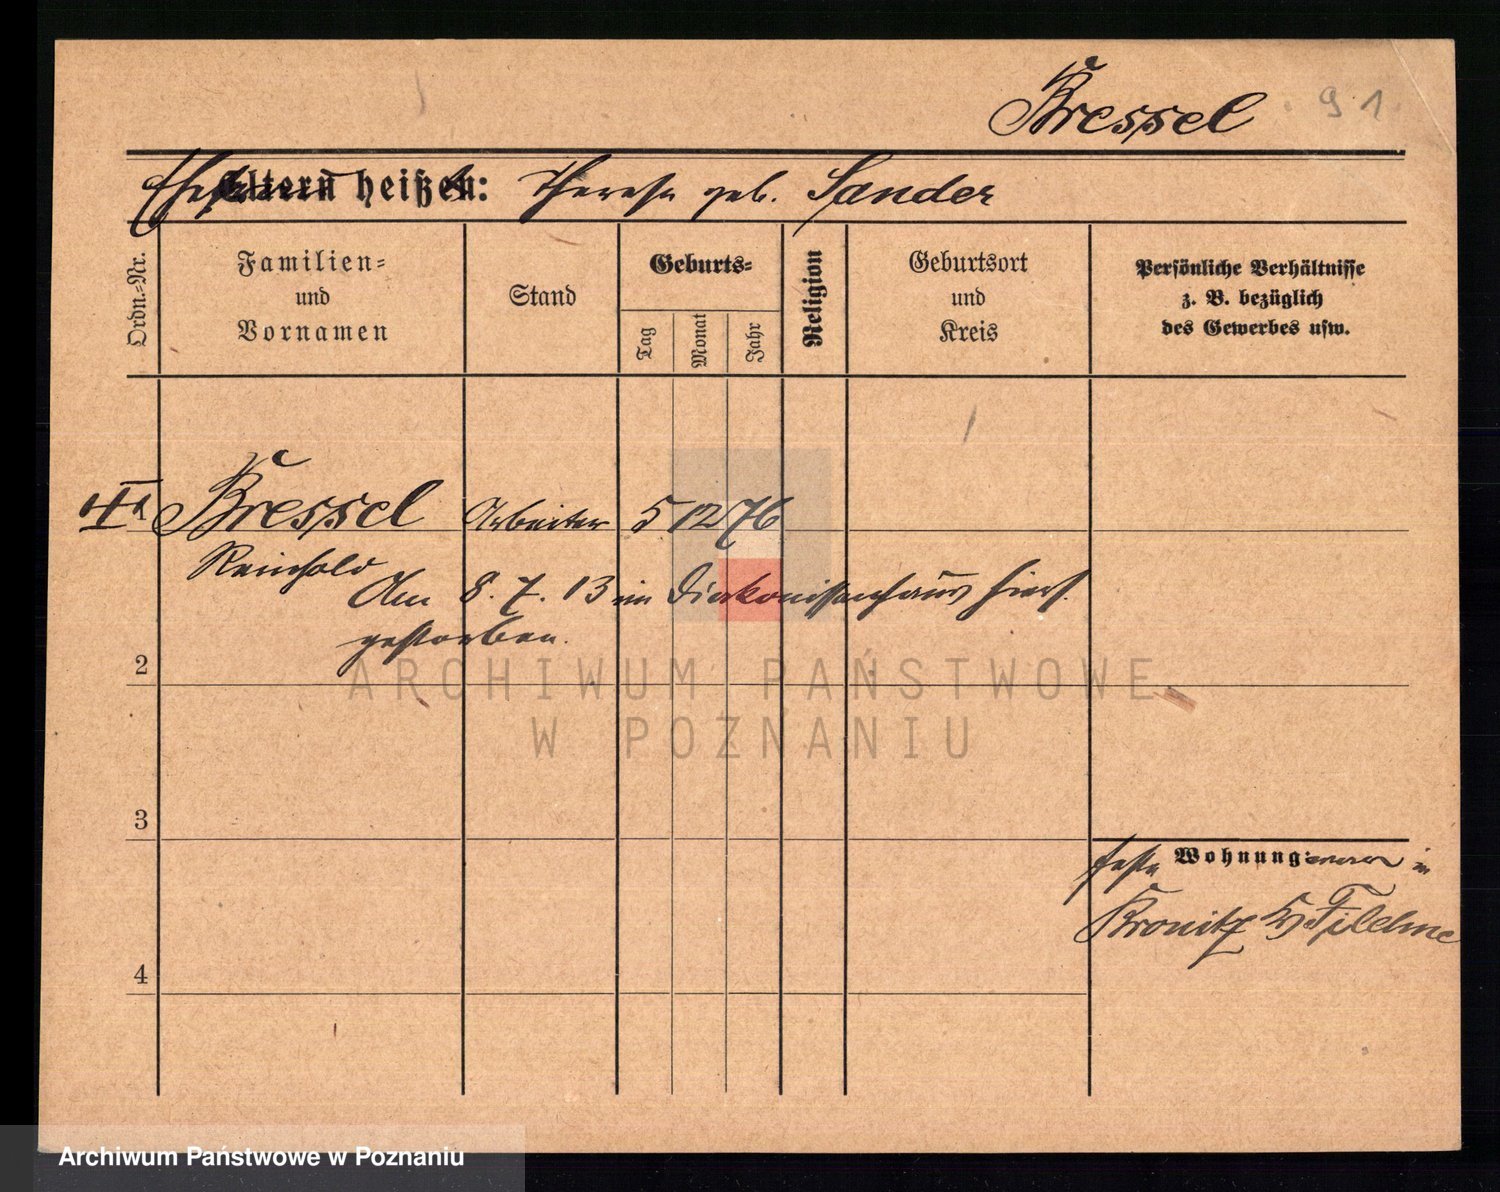 Bressel
91.
Eltern heißen: Therese geb. Sander
Ordn.=Nr.
Familien=
und
Vornamen
Stand
Geburts=
Tag
Monat
Jahr
Religion
Geburtsort
und
Kreis
Persönliche Verhältnisse
z. B. bezüglich
des Gewerbes usw.
1 Bressel Arbeiter 5 12 76
Reinhold
Am 8. 7. 13 im Diakonissenhaus hiers.
gestorben.
2
ARCHIWUM PAŃSTWOWE
W POZNANIU
3
feste Wohnung: in
4
Archiwum Państwowe w Poznaniu